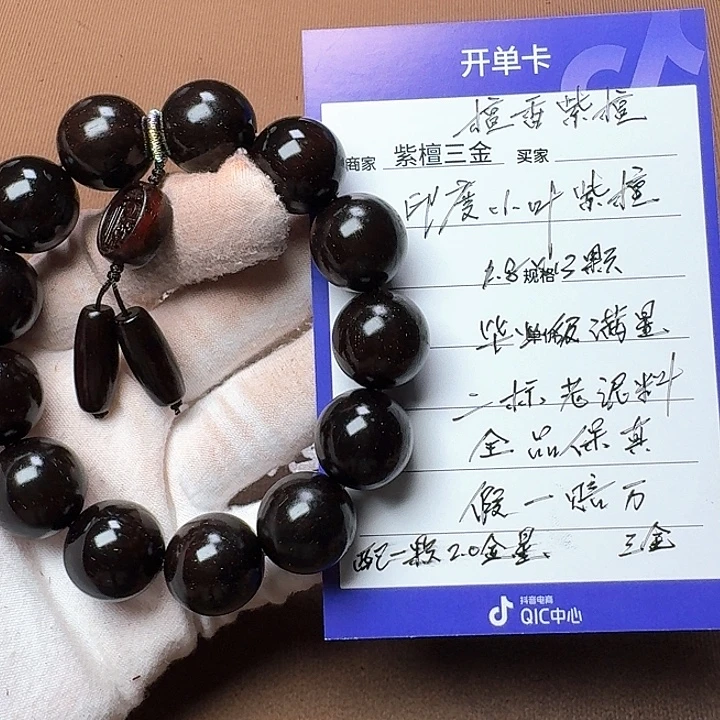 开单卡
檀香紫檀
商家 紫檀三金 买家
印度小叶紫檀
1.8 规格 13颗
毕业级满星
二标老泥料
全品保真
假一赔万
配一颗2.0金星、 三金
抖音电商
QIC中心